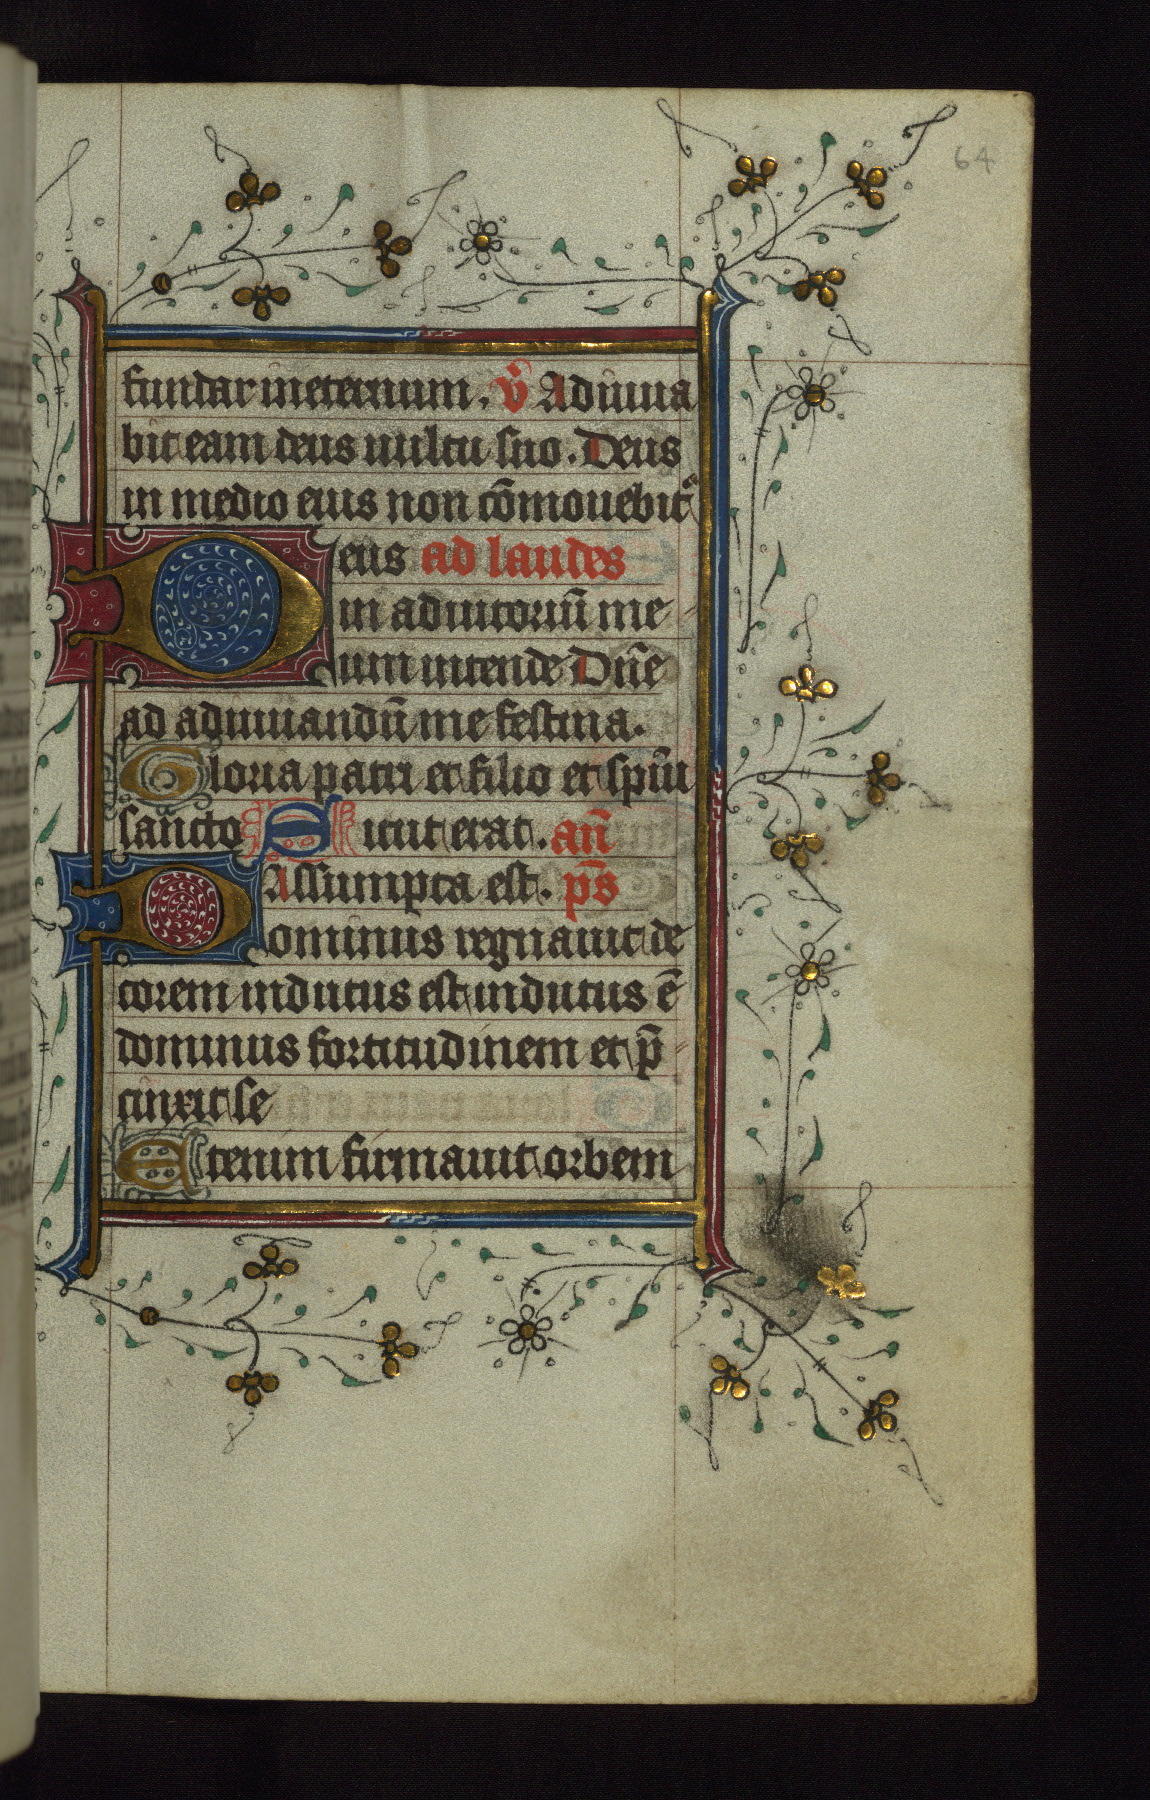 64
fundar in eternum. v̄ Adiuua
bit eam deus uultu suo. Deus
in medio eius non cōmouebit᷑
Deus ad laudes
in adiutoriū me
um intende Dn̄e
ad adiuuandū me festina.
Gloria patri et filio et spiū
sancto Sicut erat. an̄
Assumpta est. p̄s
Dominus regnauit de
corem indutus est indutus ē
dominus fortitudinem et p̄
cinxit se
Etenim firmauit orbem